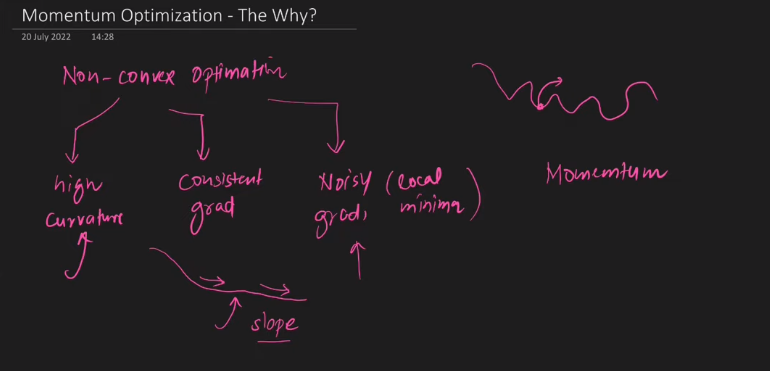 Momentum Optimization - The Why?
20 July 2022 14:28
Non-convex Optimation
high
curvature
consistent
grad
Noisy
grad,
(local
minima)
slope
Momentum